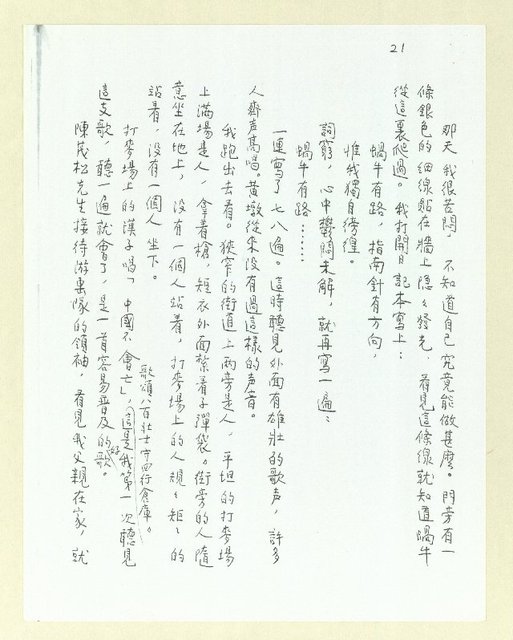 21
那天我很苦悶，不知道自己究竟能做甚麼。門旁有一
條銀色的細線貼在牆上隱々發光，看見這條線就知道蝸牛
從這裏爬過。我打開日記本寫上：
蝸牛有路，指南針有方向，
惟我獨自徬徨。
詞窮，心中鬱悶未解，就再寫一遍：
蝸牛有路……
一連寫了七八遍。這時聽見外面有雄壯的歌声，許多
人齊声高唱，黃墩從來沒有過這樣的声音。
我跑出去看。狹窄的街道上兩旁是人，平坦的打麥場
上滿場是人，拿着槍，短衣外面紮着子彈袋。街旁的人隨
意坐在地上，沒有一個人站着，打麥場上的人規々矩々的
站着，沒有一個人坐下。
打麥場上的漢子唱「中國不會亡」，這是我第一次聽見
歌頌八百壯士守四行倉庫。
這支歌，聽一遍就會了，是一首容易普及的好歌。
陳茂松先生接待游擊隊的領袖，看見我父親在家，就